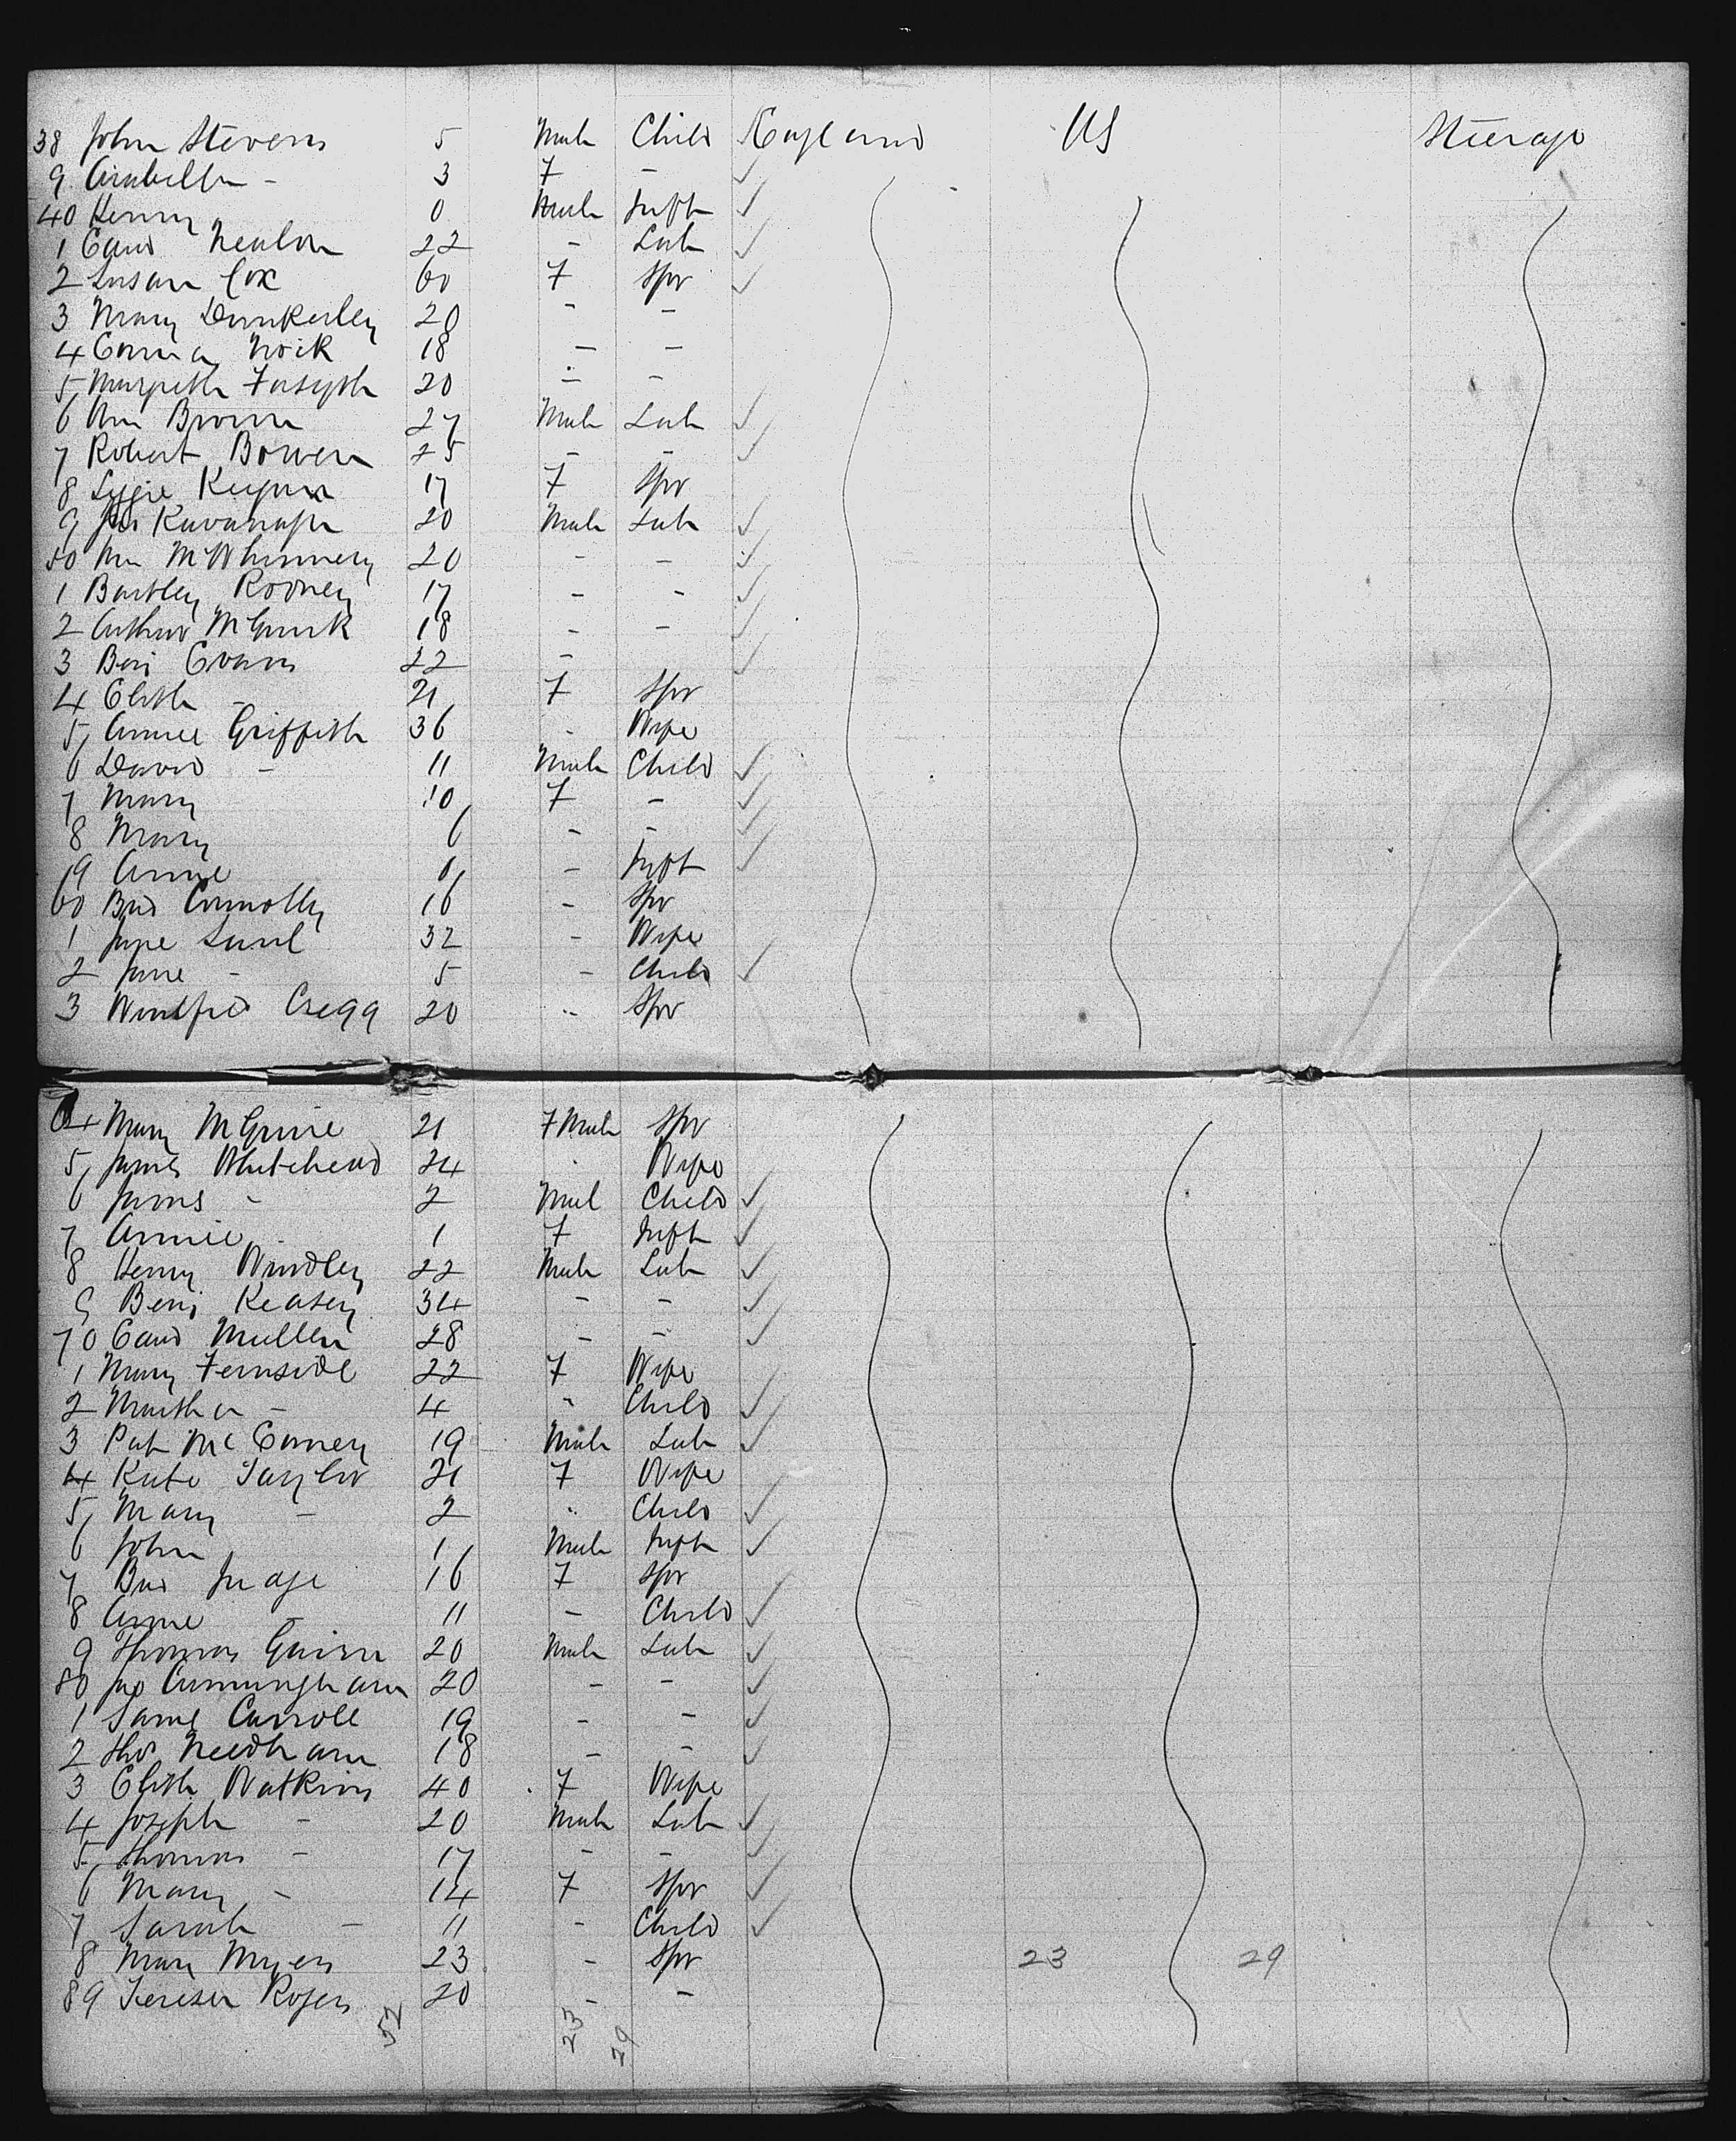 38 John Stevens 5 Male Child England US Steerage
9 Arabella - 3 F -
40 Henry 0 Male Inft
1 Edwd Newlon 22 - Lab
2 Susan Cox 60 F Spr
3 Mary Dunkerley 20 - -
4 Emma Nock 18 - -
5 Margeth Forsyth 20 - -
6 Wm Brown 27 Male Lab
7 Robert Bowen 25 - -
8 Lizzie Keegan 17 F Spr
9 Jas Kavanagh 20 Male Lab
50 Wm McWhinney 20 - -
1 Bartley Rodney 17 - -
2 Arthur McGurk 18 - -
3 Benj Evans 22 -
4 Elizth - 21 F Spr
5 Annie Griffith 36 - Wife
6 David - 11 Male Child
7 Mary 10 F -
8 Mary 6 - -
9 Annie 0 - Inft
60 Brid Connolly 16 - Spr
1 Jane Lund 32 - Wife
2 Jane - 5 - Child
3 Winifred Cregg 20 " Spr
64 Mary McGuire 21 F Male Spr
5 James Whitehead 24 Wife
6 James - 2 Male Child
7 Annie 1 F Inft
8 Henry Windley 22 Male Lab
9 Benj Keasey 34 - -
70 Edwd Mullen 28 - -
1 Mary Fernside 22 F Wife
2 Martha - 4 - Child
3 Pat Mc Enney 19 Male Lab
4 Kate Taylor 21 F Wife
5 Mary - 2 " Child
6 John 1 Male Inft
7 Brid Judge 16 F Spr
8 Anne - 11 - Child
9 Thomas Quinn 20 Male Lab
80 Jno Cunningham 20 - -
1 Saml Carroll 19 - -
2 Thos Needham 18 - -
3 Elizth Watkins 40 F Wife
4 Joseph - 20 Male Lab
5 Thomas - 17 - -
6 Mary - 14 F Spr
7 Sarah - 11 - Child
8 Mary Myers 23 - Spr 23 29
89 Teresa Rogers 20 - -
52 23 29